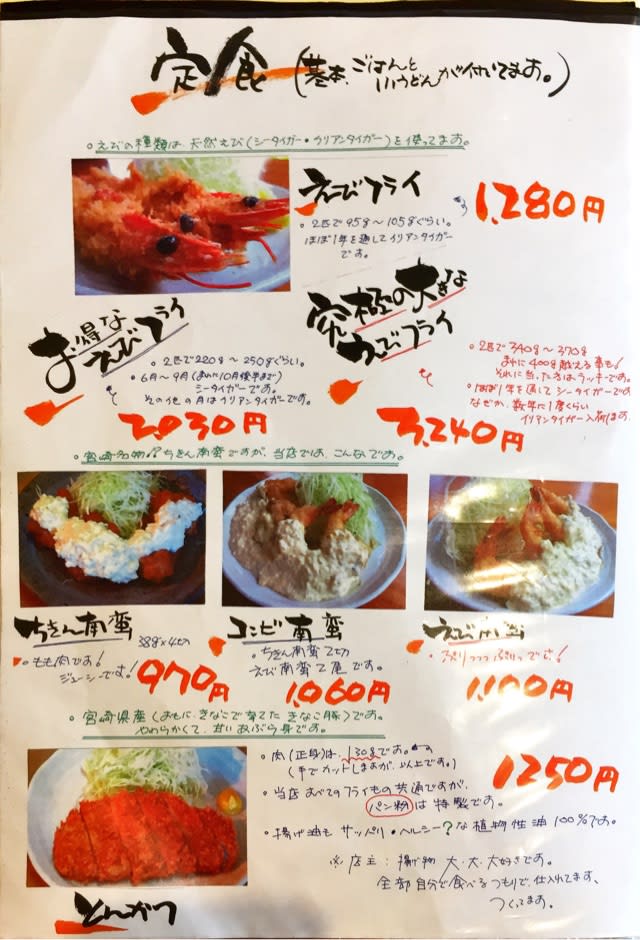 定食 (基本、ごはんと
ミリうどんが付いてます。)
・えびの種類は、天然えび(シータイガー・イリアンタイガー)を使ってます。
えびフライ
1,280円
・2匹で95g〜105gぐらい。
ほぼ1年を通してイリアンタイガー
です。
お得な
えびフライ
・2匹で220g〜250gぐらい。
・6月〜9月(まれに10月後半まで)
シータイガーです。
その他の月はイリアンタイガーです。
2,030円
究極の大きな
えびフライ
・2匹で340g〜370g
まれに400g越える事も!
それに当った方はラッキーです。
・ほぼ1年を通してシータイガーです
なぜか、数年に1度くらい
イリアンタイガー入荷は。
3,240円
・宮崎名物!?ちきん南蛮ですが、当店では、こんなです。
ちきん南蛮 38g×4切
・もも肉です!
ジューシーです!
970円
コンビ南蛮
・ちきん南蛮2切
えび南蛮2尾です。
1,060円
えび南蛮
・ぷりっっっぷりっです!
1,100円
・宮崎県産(おもに、きなこで育てたきなこ豚)です。
やわらかくて、甘いあぶら身です。
とんかつ
1250円
・肉(正身)は、130gです。
(手でカットしますが、以上です。)
・当店すべてのフライもの共通ですが、
パン粉は特製です。
・揚げ油もサッパリ・ヘルシー?な植物性油100%です。
※店主:揚げ物 大・大・大好きです。
全部自分で食べるつもりで、仕入れてます、
つくってます。